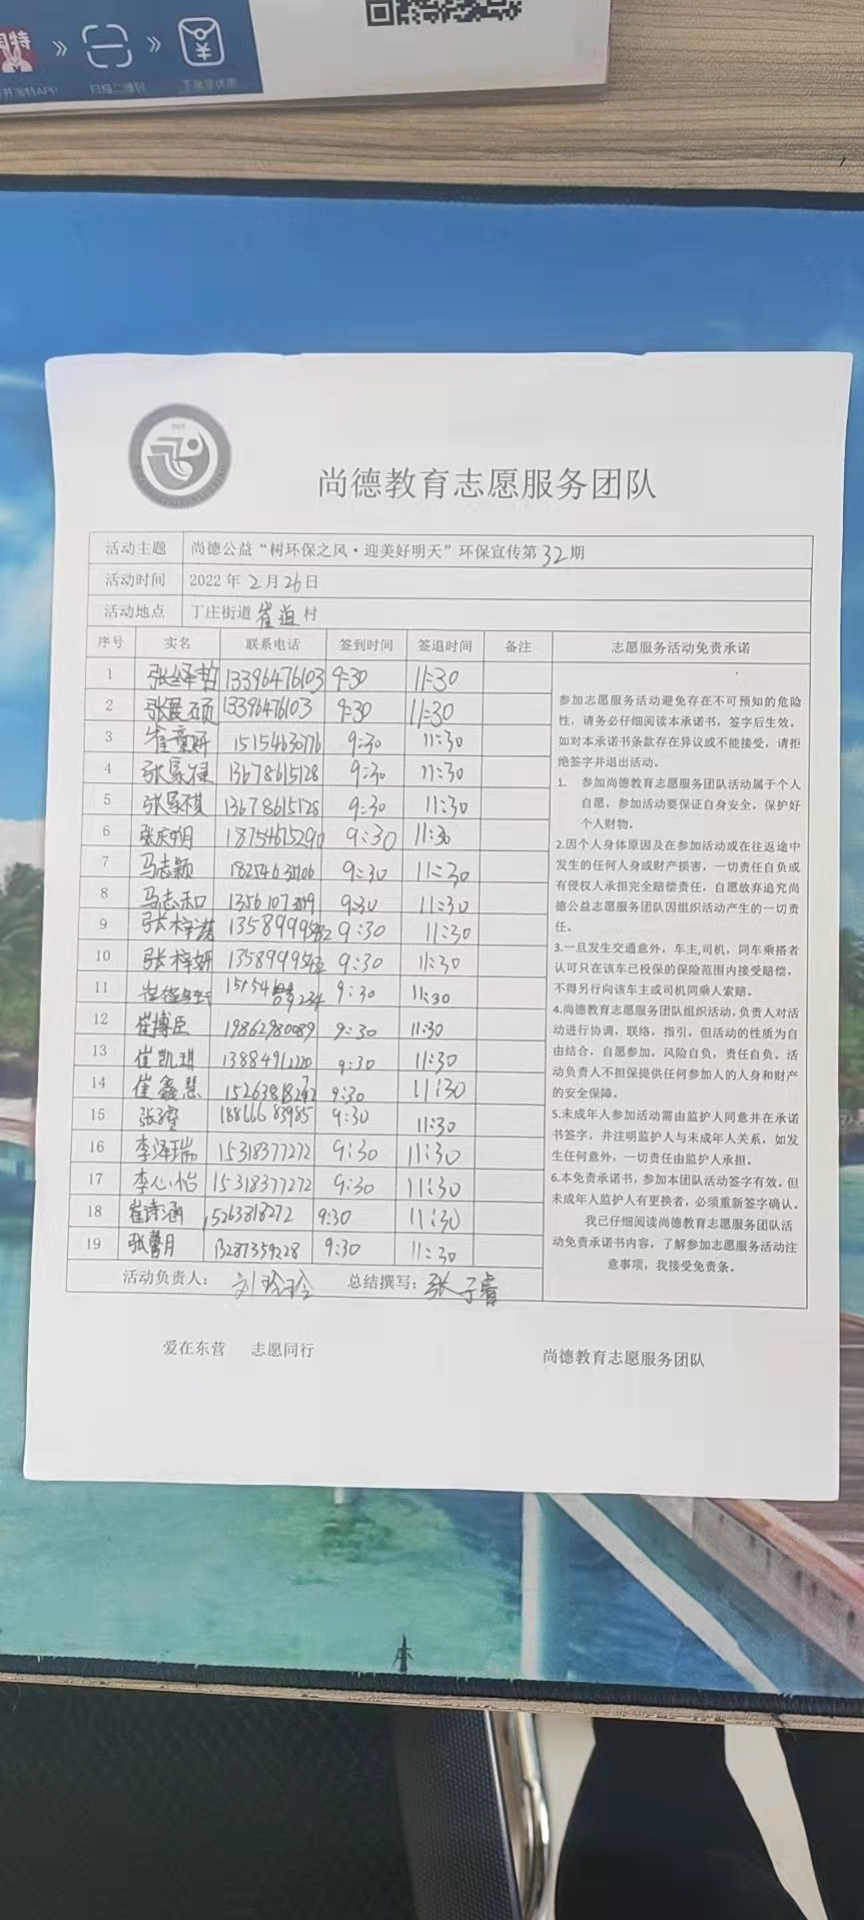 扫描二维码
尚德教育志愿服务团队
活动主题 尚德公益“树环保之风·迎美好明天”环保宣传第32期
活动时间 2022年2月26日
活动地点 丁庄街道崔道村
序号 实名 联系电话 签到时间 签退时间 备注 志愿服务活动免责承诺
1 张绎哲 13396476103 9:30 11:30
2 张晨硕 13396476103 9:30 11:30
3 崔童妍 15154630776 9:30 11:30
4 张家禄 13678615128 9:30 11:30
5 张家祺 13678615128 9:30 11:30
6 18754615290 9:30 11:30
7 马志颖 9:30 11:30
8 马志和 9:30 11:30
9 张梓诺 9:30 11:30
10 张梓妍 9:30 11:30
11 9:30 11:30
12 崔博臣 19862980089 9:30 11:30
13 崔凯琪 13884912220 9:30 11:30
14 崔鑫慧 9:30 11:30
15 18866683985 9:30 11:30
16 李泽瑞 15318377272 9:30 11:30
17 李心怡 15318377272 9:30 11:30
18 崔诗涵 15263818272 9:30 11:30
19 张馨月 13287359228 9:30 11:30
参加志愿服务活动避免存在不可预知的危险
性，请务必仔细阅读本承诺书，签字后生效。
如对本承诺书条款存在异议或不能接受，请拒
绝签字并退出活动。
1. 参加尚德教育志愿服务团队活动属于个人
自愿，参加活动要保证自身安全，保护好
个人财物。
2.因个人身体原因及在参加活动或在往返途中
发生的任何人身或财产损害，一切责任自负或
有侵权人承担完全赔偿责任，自愿放弃追究尚
德公益志愿服务团队因组织活动产生的一切责
任。
3.一旦发生交通意外，车主,司机，同车乘搭者
认可只在该车已投保的保险范围内接受赔偿，
不得另行向该车主或司机同乘人索赔。
4.尚德教育志愿服务团队组织活动，负责人对活
动进行协调、联络、指引，但活动的性质为自
由结合，自愿参加，风险自负，责任自负。活
动负责人不担保提供任何参加人的人身和财产
的安全保障。
5.未成年人参加活动需由监护人同意并在承诺
书签字，并注明监护人与未成年人关系，如发
生任何意外，一切责任由监护人承担。
6.本免责承诺书，参加本团队活动签字有效。但
未成年人监护人有更换者，必须重新签字确认。
我已仔细阅读尚德教育志愿服务团队活
动免责承诺书内容，了解参加志愿服务活动注
意事项，我接受免责条。
活动负责人：刘玲玲 总结撰写：张子睿
爱在东营 志愿同行 尚德教育志愿服务团队